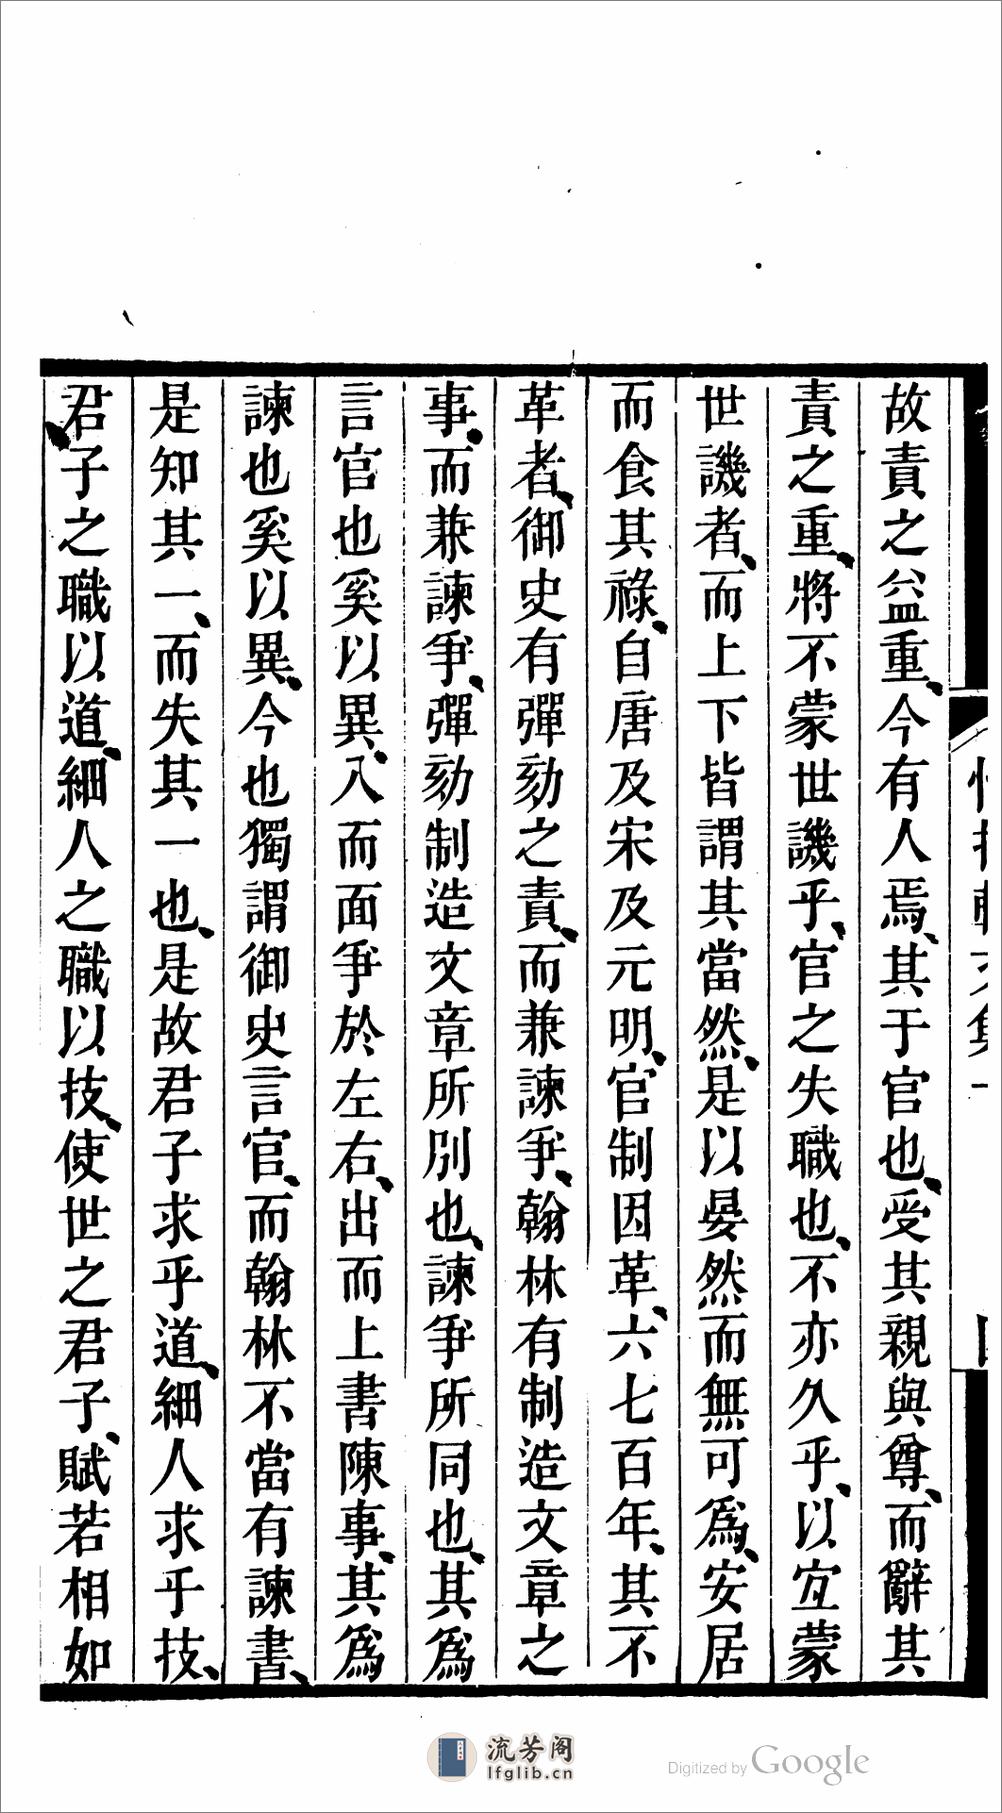 故責之益重、今有人焉、其于官也、受其親與尊、而辭其
責之重、將不蒙世譏乎、官之失職也、不亦久乎、以宜蒙
世譏者、而上下皆謂其當然、是以晏然而無可爲、安居
而食其祿、自唐及宋及元明、官制因革、六七百年、其不
革者、御史有彈劾之責、而兼諫爭、翰林有制造文章之
事、而兼諫爭、彈劾制造文章所別也、諫爭所同也、其爲
言官也奚以異、入而面爭於左右、出而上書陳事、其爲
諫也奚以異、今也獨謂御史言官、而翰林不當有諫書、
是知其一、而失其一也、是故君子求乎道、細人求乎技、
君子之職以道、細人之職以技、使世之君子、賦若相如
流芳阁
lfglib.cn
Digitized by Google